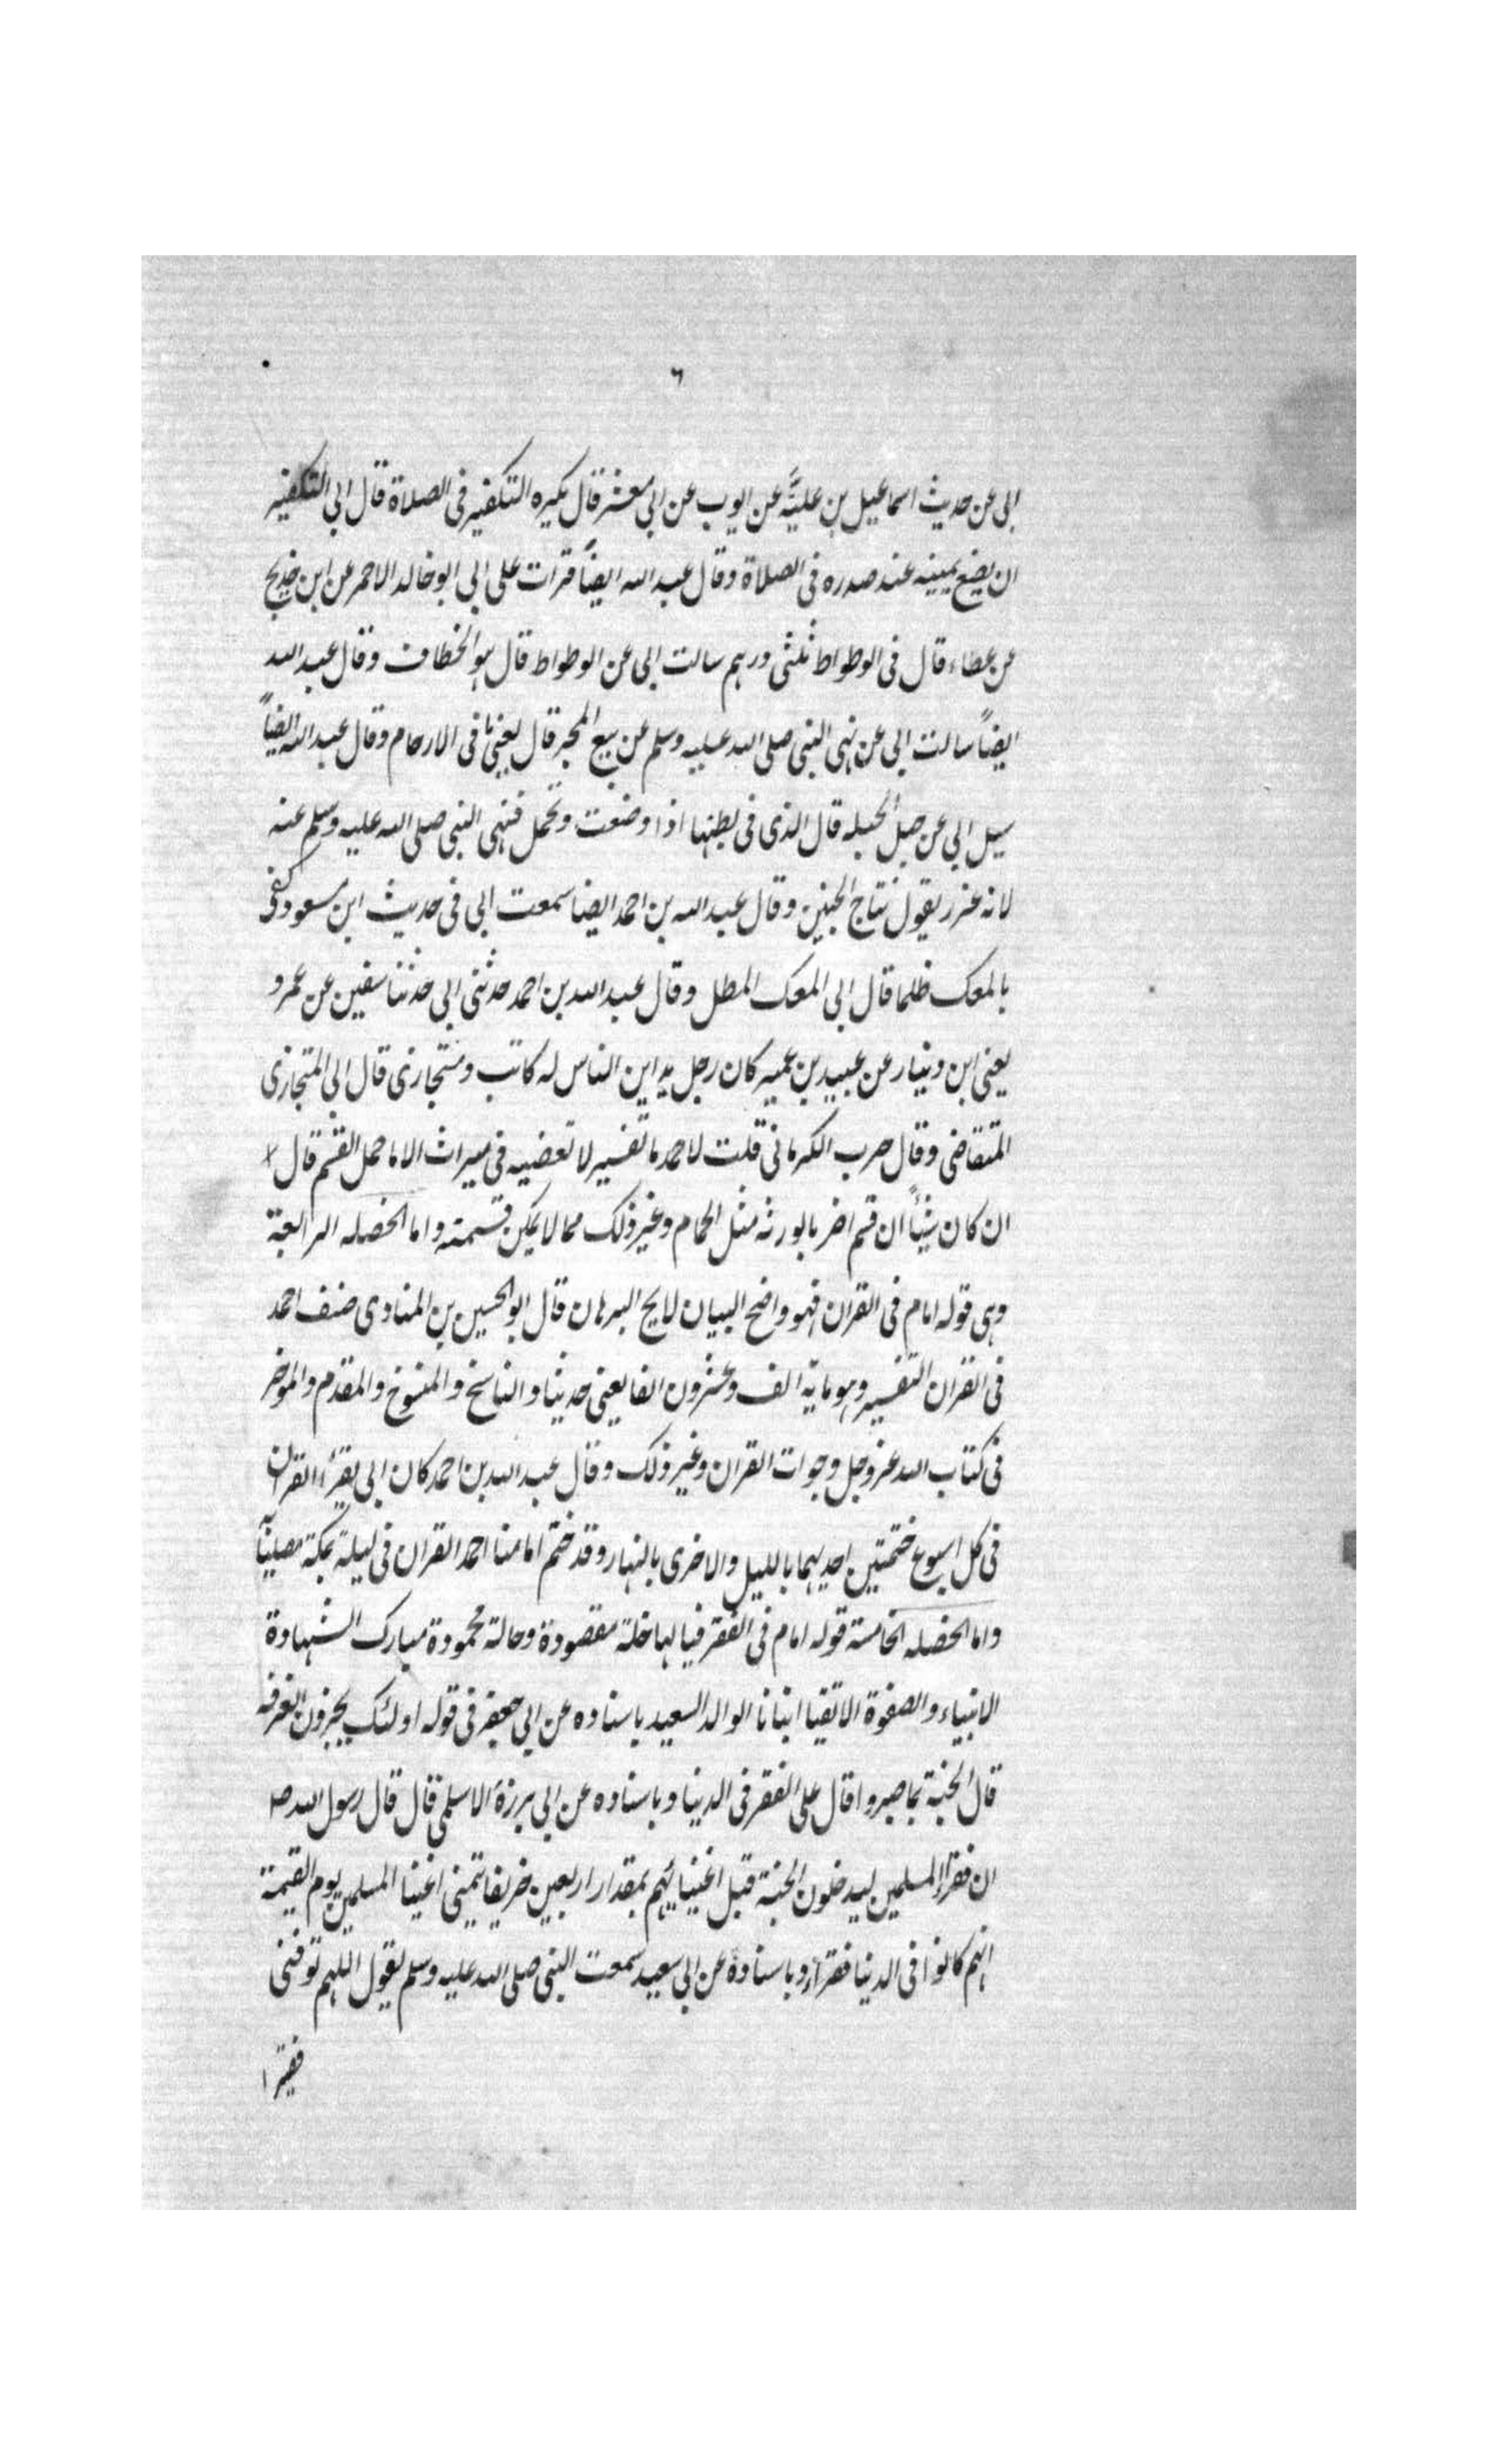 ٦
ابى عن حديث اسماعيل بن عليَّه عن ايوب عن ابى معشر قال يكره التكفير فى الصلاة قال ابي التكفير
ان يضع يمينه عند صدره فى الصلاة وقال عبد الله ايضاً قرات على ابي ابو خالد الاحمر عن ابن جريج
عن عطاء قال فى الوطواط ثلثى درهم سالت ابى عن الوطواط قال هو الخطاف وقال عبد الله
ايضاً سالت ابي عن نهى النبي صلى الله عليه وسلم عن بيع المجر قال يعنى ما فى الارحام وقال عبد الله ايضاً
سيل ابي عن حبل الحبله قال الذى فى بطنها اذا وضعت وتحمل فنهى النبي صلى الله عليه وسلم عنه
لانه غرر يقول نتاج الجنين وقال عبد الله بن احمد ايضا سمعت ابى فى حديث ابن مسعود كفى
بالمعك ظلما قال ابى المعك المطل وقال عبد الله بن احمد حدثنى ابى حدثنا سفين عن عمرو
يعنى ابن دينار عن عبيد بن عمير كان رجل يداين الناس له كاتب ومتجازى قال ابي المتجازى
المتقاضى وقال حرب الكرمانى قلت لاحمد ما تفسير لا تعضيه فى ميراث الا ما حمل القسم قال
ان كان شيئاً ان قسم اضر بالورثه مثل الحمام وغير ذلك مما لا يمكن قسمته واما الخصله الرابعة
وهى قوله امام فى القران فهو واضح البيان لايح البرهان قال ابو الحسين بن المنادى صنف احمد
فى القران التفسير وهو ماية الف وعشرون الفا يعنى حديثا والناسخ والمنسوخ والمقدم والموخر
فى كتاب الله عز وجل وجوابات القران وغير ذلك وقال عبد الله بن احمد كان ابى يقرا القران
فى كل اسبوع ختمتين احديهما بالليل والاخرى بالنهار وقد ختم امامنا احمد القران فى ليلة بمكة مصلياً
واما الخصله الخامسة قوله امام فى الفقر فيا لها خلة مقصودة وحالة محمودة مبارك الشهادة
الانبياء والصفوة الاتقيا انبانا الوالد السعيد باسناده عن ابي جعفر فى قوله اولئك يجزون الغرفه
قال الجنة بما صبروا قال على الفقر فى الدينا وباسناده عن ابى برزة الاسلمي قال قال رسول الله صـ
ان فقراء المسلمين ليدخلون الجنة قبل اغنيائهم بمقدار اربعين خريفا يتمنى اغنيا المسلمين يوم القيمة
انهم كانوا فى الدينا فقراء وباسناده عن ابي سعيد سمعت النبى صلى الله عليه وسلم يقول اللهم توفنى
فقيرا